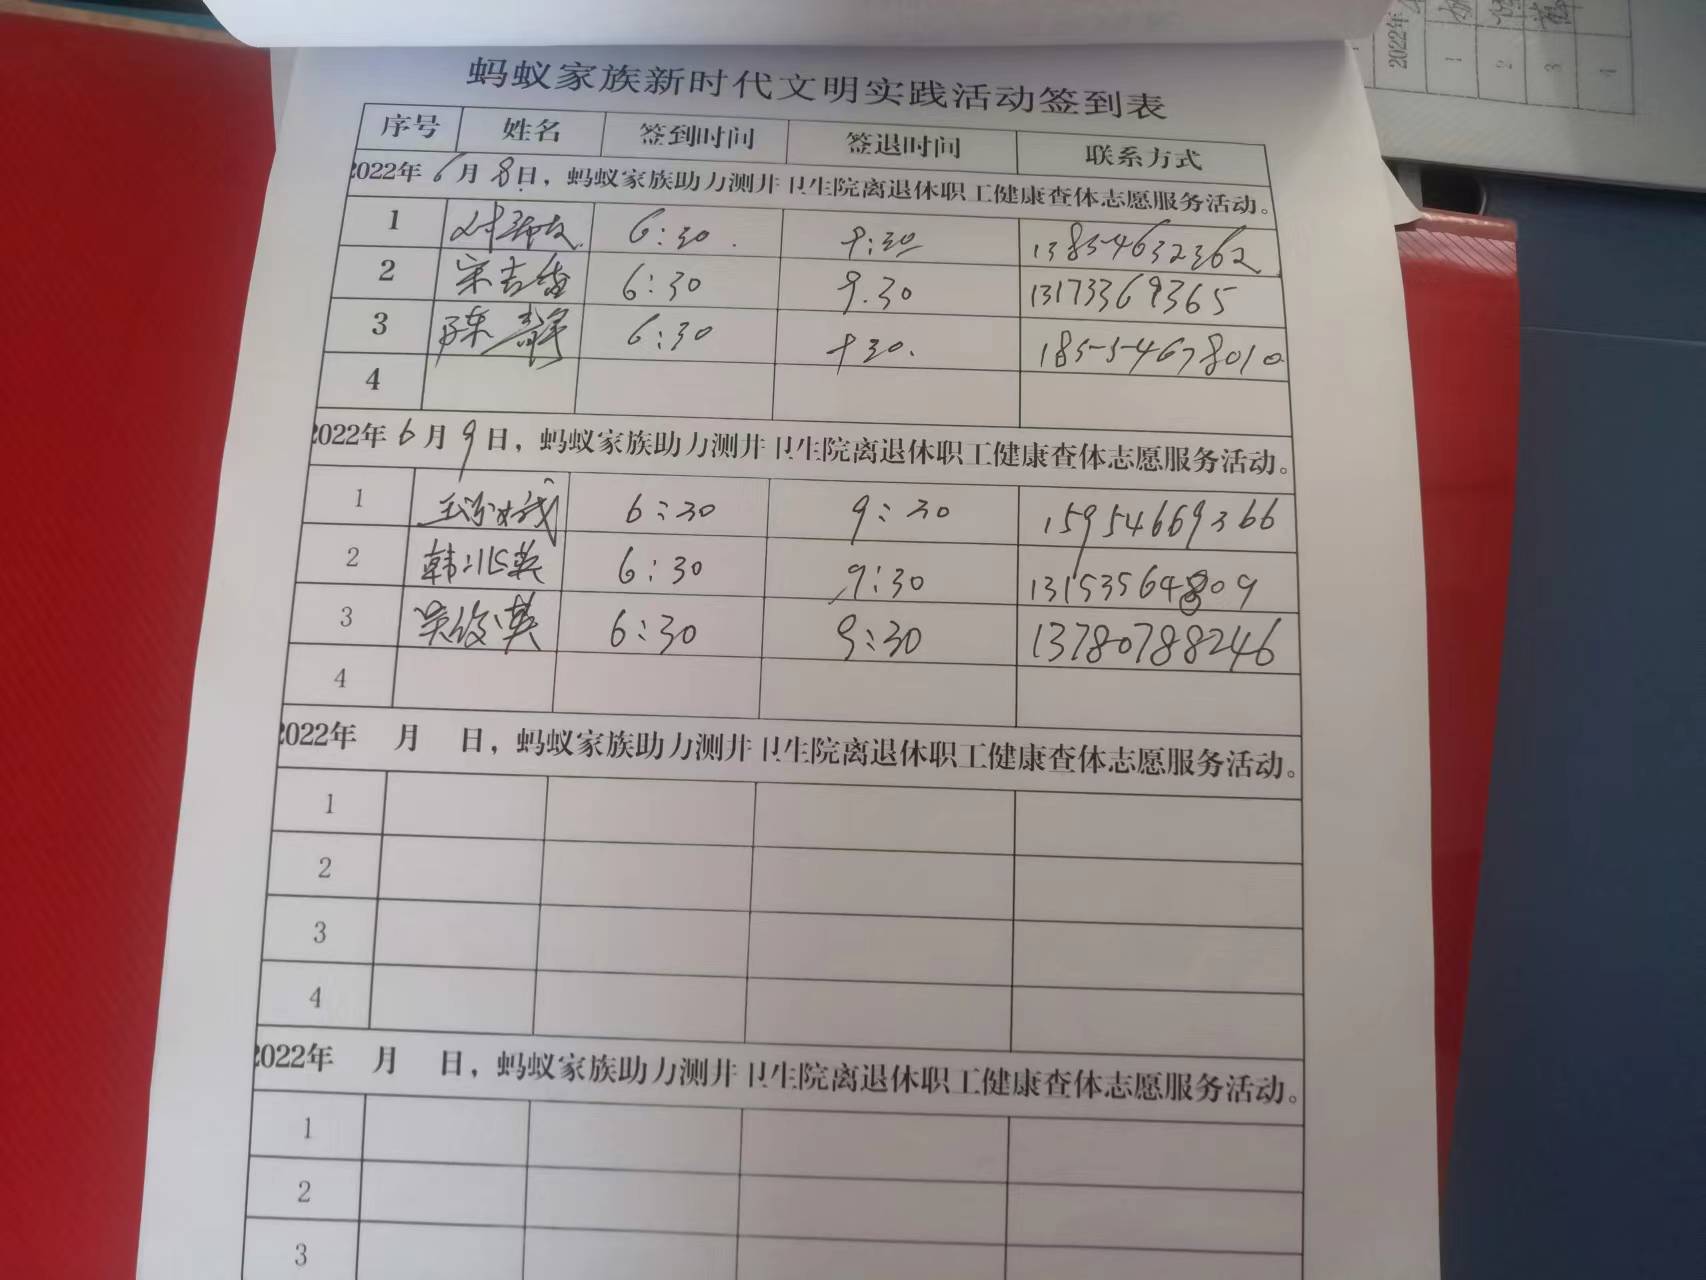 蚂蚁家族新时代文明实践活动签到表
序号 姓名 签到时间 签退时间 联系方式
2022年6月8日，蚂蚁家族助力测井卫生院离退休职工健康查体志愿服务活动。
1 6:30 9:30 13854632362
2 宋吉 6:30 9.30 13173369365
3 陈静 6:30 930. 18554678010
4
2022年6月9日，蚂蚁家族助力测井卫生院离退休职工健康查体志愿服务活动。
1 6:30 9:30 15954669366
2 韩兆英 6:30 9:30 13153564809
3 吴俊英 6:30 9:30 13780788246
4
2022年 月 日，蚂蚁家族助力测井卫生院离退休职工健康查体志愿服务活动。
1
2
3
4
2022年 月 日，蚂蚁家族助力测井卫生院离退休职工健康查体志愿服务活动。
1
2
3
2022年
1
2
3
4